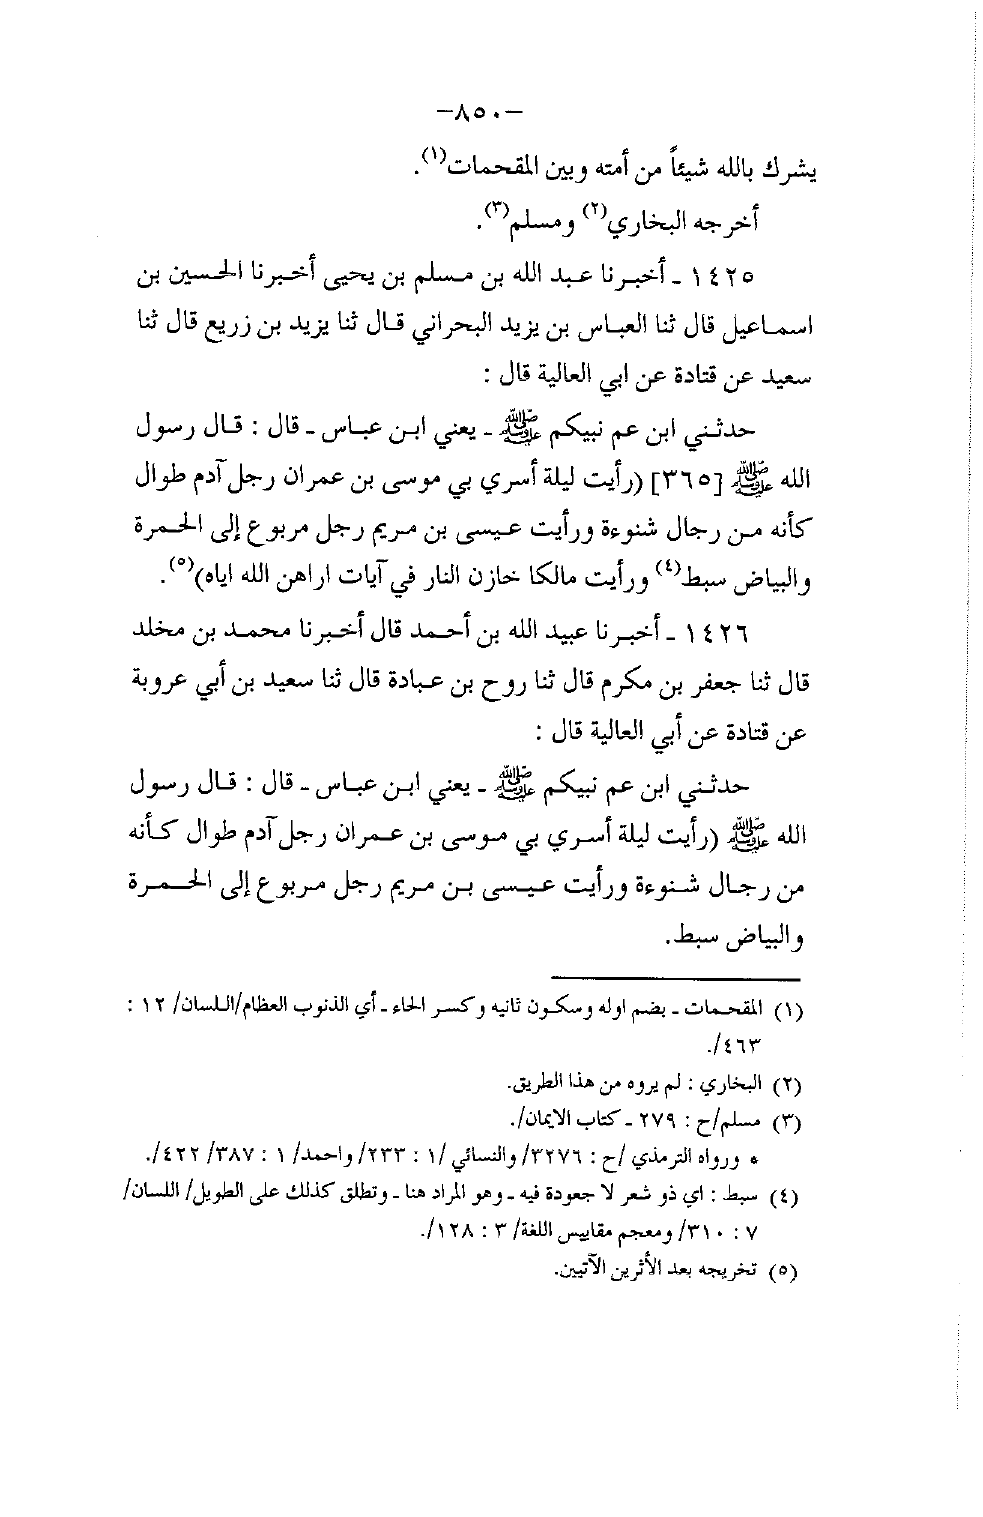 —٨٥٠—
يشرك بالله شيئاً من أمته وبين المقحمات(١).
أخرجه البخاري(٢) ومسلم(٣).
١٤٢٥ ـ أخبرنا عبد الله بن مسلم بن يحيى أخبرنا الحسين بن
اسماعيل قال ثنا العباس بن يزيد البحراني قال ثنا يزيد بن زريع قال ثنا
سعيد عن قتادة عن ابي العالية قال :
حدثني ابن عم نبيكم ﷺ ـ يعني ابن عباس ـ قال : قال رسول
الله ﷺ [٣٦٥] (رأيت ليلة أسري بي موسى بن عمران رجل آدم طوال
كأنه من رجال شنوءة ورأيت عيسى بن مريم رجل مربوع إلى الحمرة
والبياض سبط(٤) ورأيت مالكا خازن النار في آيات اراهن الله اياه)(٥).
١٤٢٦ ـ أخبرنا عبيد الله بن أحمد قال أخبرنا محمد بن مخلد
قال ثنا جعفر بن مكرم قال ثنا روح بن عبادة قال ثنا سعيد بن أبي عروبة
عن قتادة عن أبي العالية قال :
حدثني ابن عم نبيكم ﷺ ـ يعني ابن عباس ـ قال : قال رسول
الله ﷺ (رأيت ليلة أسري بي موسى بن عمران رجل آدم طوال كأنه
من رجال شنوءة ورأيت عيسى بن مريم رجل مربوع إلى الحمرة
والبياض سبط.
(١) المقحمات ـ بضم اوله وسكون ثانيه وكسر الحاء ـ أي الذنوب العظام/اللسان/ ١٢ :
٤٦٣/.
(٢) البخاري : لم يروه من هذا الطريق.
(٣) مسلم/ح : ٢٧٩ ـ كتاب الايمان/.
* ورواه الترمذي /ح : ٣٢٧٦/ والنسائي /١ : ٢٣٣/ واحمد/ ١ : ٣٨٧/ ٤٢٢/.
(٤) سبط : اي ذو شعر لا جعودة فيه ـ وهو المراد هنا ـ وتطلق كذلك على الطويل/ اللسان/
٧ : ٣١٠/ ومعجم مقاييس اللغة/ ٣ : ١٢٨/.
(٥) تخريجه بعد الأثرين الآتيين.